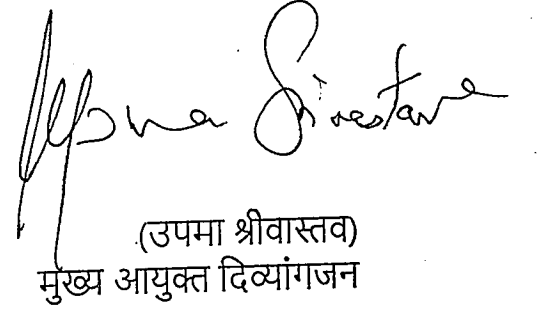 Upma Srivastava
(उपमा श्रीवास्तव)
मुख्य आयुक्त दिव्यांगजन